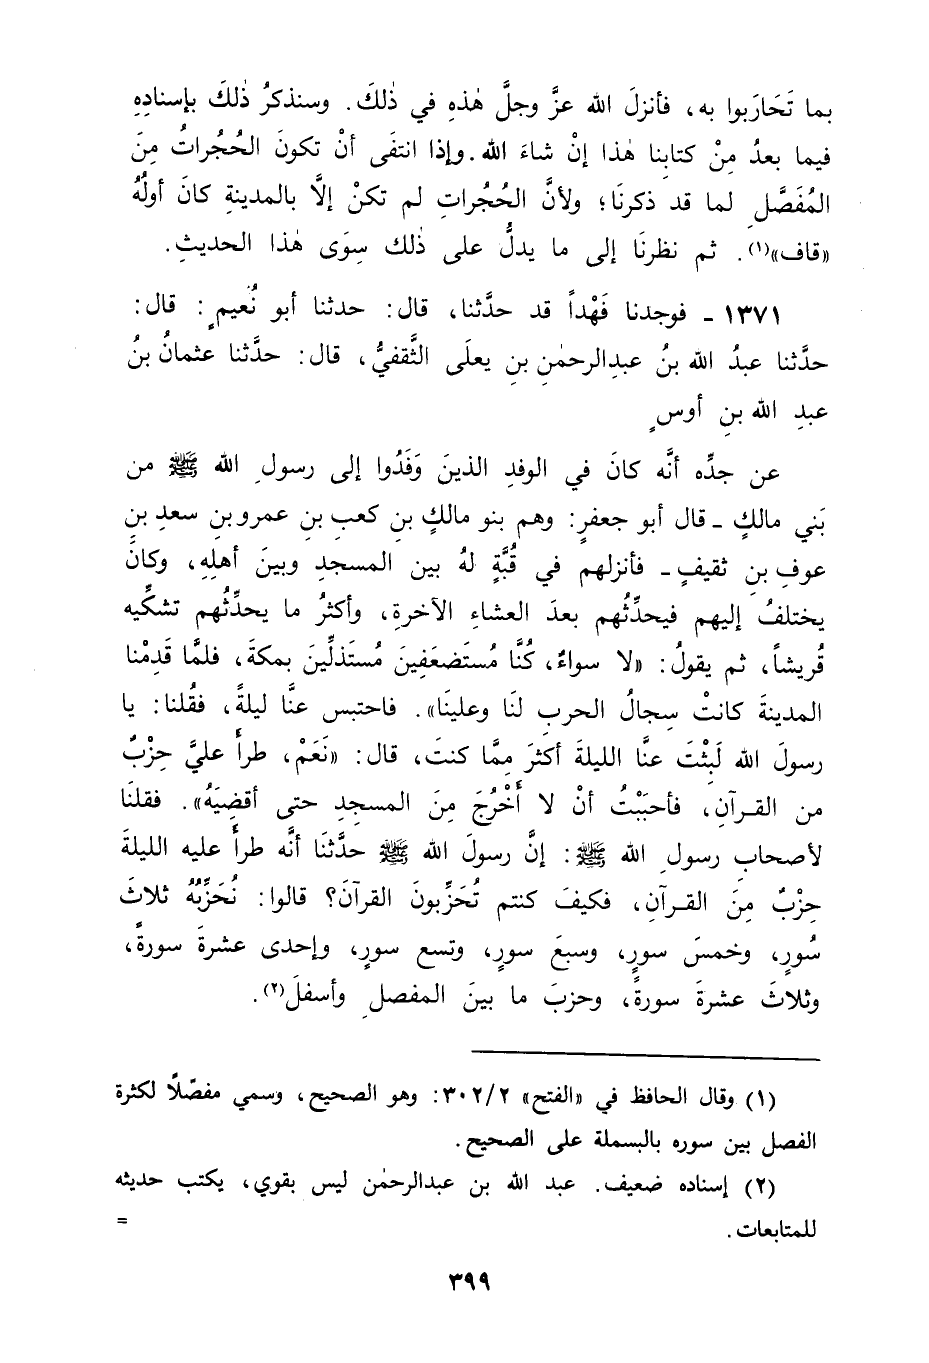 بما تَحَارَبوا به، فأنزلَ الله عزَّ وجلَّ هٰذهِ في ذٰلكَ. وسنذكرُ ذٰلكَ بإسنادِهِ
فيما بعدُ مِنْ كتابنا هٰذا إنْ شاءَ الله. وإذا انتفَى أنْ تكونَ الحُجُراتُ مِنَ
المُفَصَّلِ لما قد ذكرنَا؛ ولأنَّ الحُجُراتِ لم تكنْ إلَّا بالمدينةِ كانَ أولُهُ
«قاف»(١). ثم نظرنَا إلى ما يدلُّ على ذٰلك سِوَى هٰذا الحديثِ.
١٣٧١ ـ فوجدنا فَهْداً قد حدَّثنا، قال: حدثنا أبو نُعيمٍ: قال:
حدَّثنا عبدُ الله بنُ عبدِالرحمٰنِ بنِ يعلَى الثَّقفيُّ، قال: حدَّثنا عثمانُ بنُ
عبدِ الله بنِ أوسٍ
عن جدِّه أنَّه كانَ في الوفدِ الذينَ وَفَدُوا إلى رسولِ الله ﷺ من
بَني مالكٍ ـ قال أبو جعفرٍ: وهم بنو مالكِ بنِ كعبِ بنِ عمرو بنِ سعدِ بنِ
عوفِ بنِ ثقيفٍ ـ فأنزلهم في قُبَّةٍ لهُ بين المسجدِ وبينَ أهلِهِ، وكانَ
يختلفُ إليهم فيحدِّثُهم بعدَ العشاءِ الآخرةِ، وأكثرُ ما يحدِّثُهم تشكِّيه
قُريشاً، ثم يقولُ: «لا سواءٌ، كُنَّا مُستَضعَفِينَ مُستَذلِّينَ بمكةَ، فلمَّا قَدِمْنا
المدينةَ كانتْ سِجالُ الحربِ لنَا وعلينَا». فاحتبس عنَّا ليلةً، فقُلنا: يا
رسولَ الله لَبِثْتَ عنَّا الليلةَ أكثرَ مِمَّا كنتَ، قال: «نَعَمْ، طرأَ عليَّ حِزْبٌ
من القرآنِ، فأحبَبْتُ أنْ لا أَخْرُجَ مِنَ المسجدِ حتى أقضِيَهُ». فقلنَا
لأصحابِ رسولِ الله ﷺ: إنَّ رسولَ الله ﷺ حدَّثنَا أنَّه طرأَ عليه الليلةَ
حِزْبٌ مِنَ القرآنِ، فكيفَ كنتم تُحَزِّبونَ القرآنَ؟ قالوا: نُحَزِّبُهُ ثلاثَ
سُورٍ، وخمسَ سورٍ، وسبعَ سورٍ، وتسع سورٍ، وإحدى عشرةَ سورةً،
وثلاثَ عشرةَ سورةً، وحزبَ ما بينَ المفصلِ وأسفلَ(٢).
(١) وقال الحافظ في «الفتح» ٣٠٢/٢: وهو الصحيح، وسمي مفصّلًا لكثرة
الفصل بين سوره بالبسملة على الصحيح.
(٢) إسناده ضعيف. عبد الله بن عبدالرحمٰن ليس بقوي، يكتب حديثه
للمتابعات. =
٣٩٩